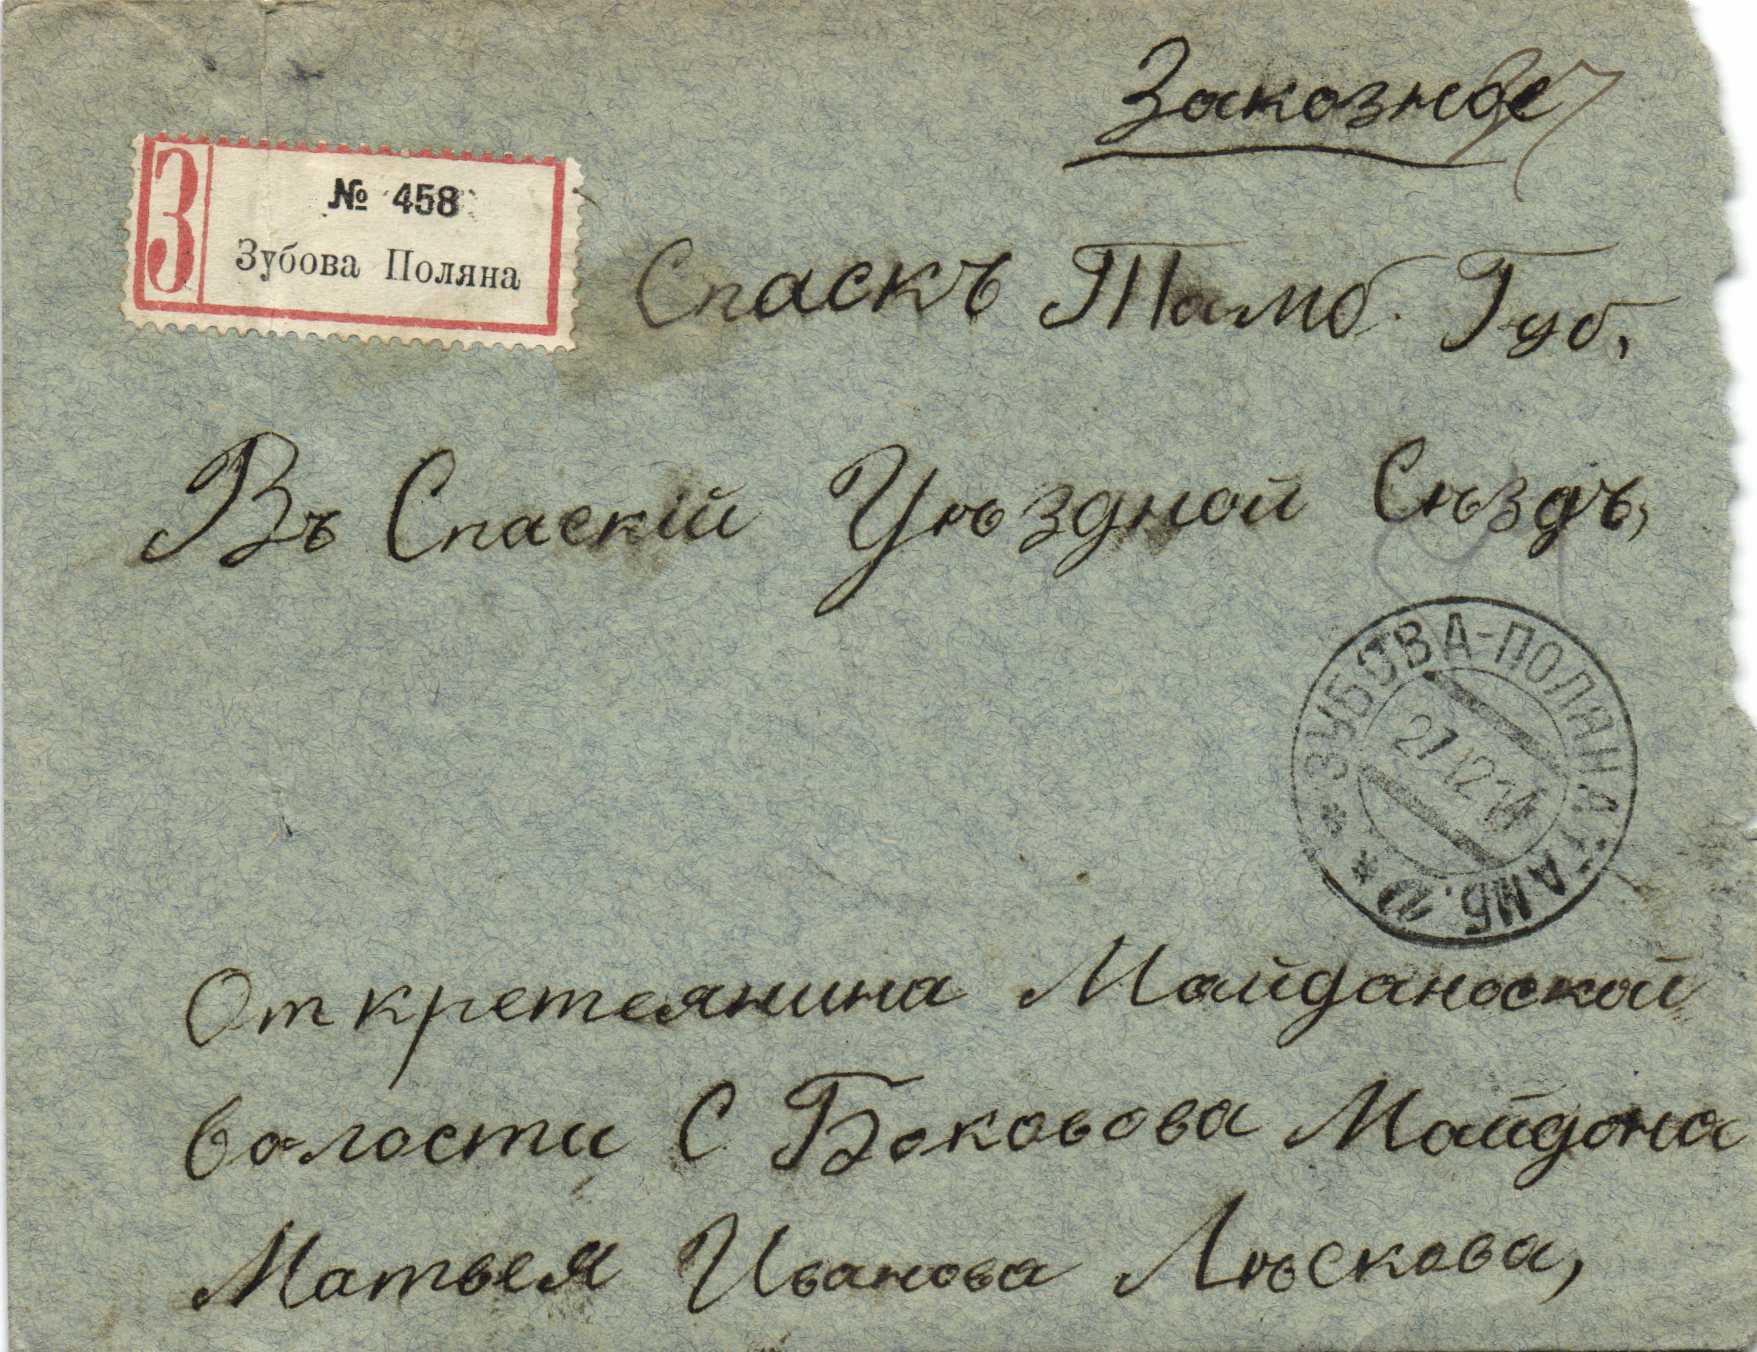 Заказное
З
№ 458
Зубова Поляна
Спаскъ Тамб. Губ,
Въ Спаскій Уѣздной Сѣздъ,
ЗУБОВА-ПОЛЯНА ТАМБ.
27 12 14
От кретеянина Майданоской
волости С Боковова Майдана
Матвея Иванова Лѣскова,